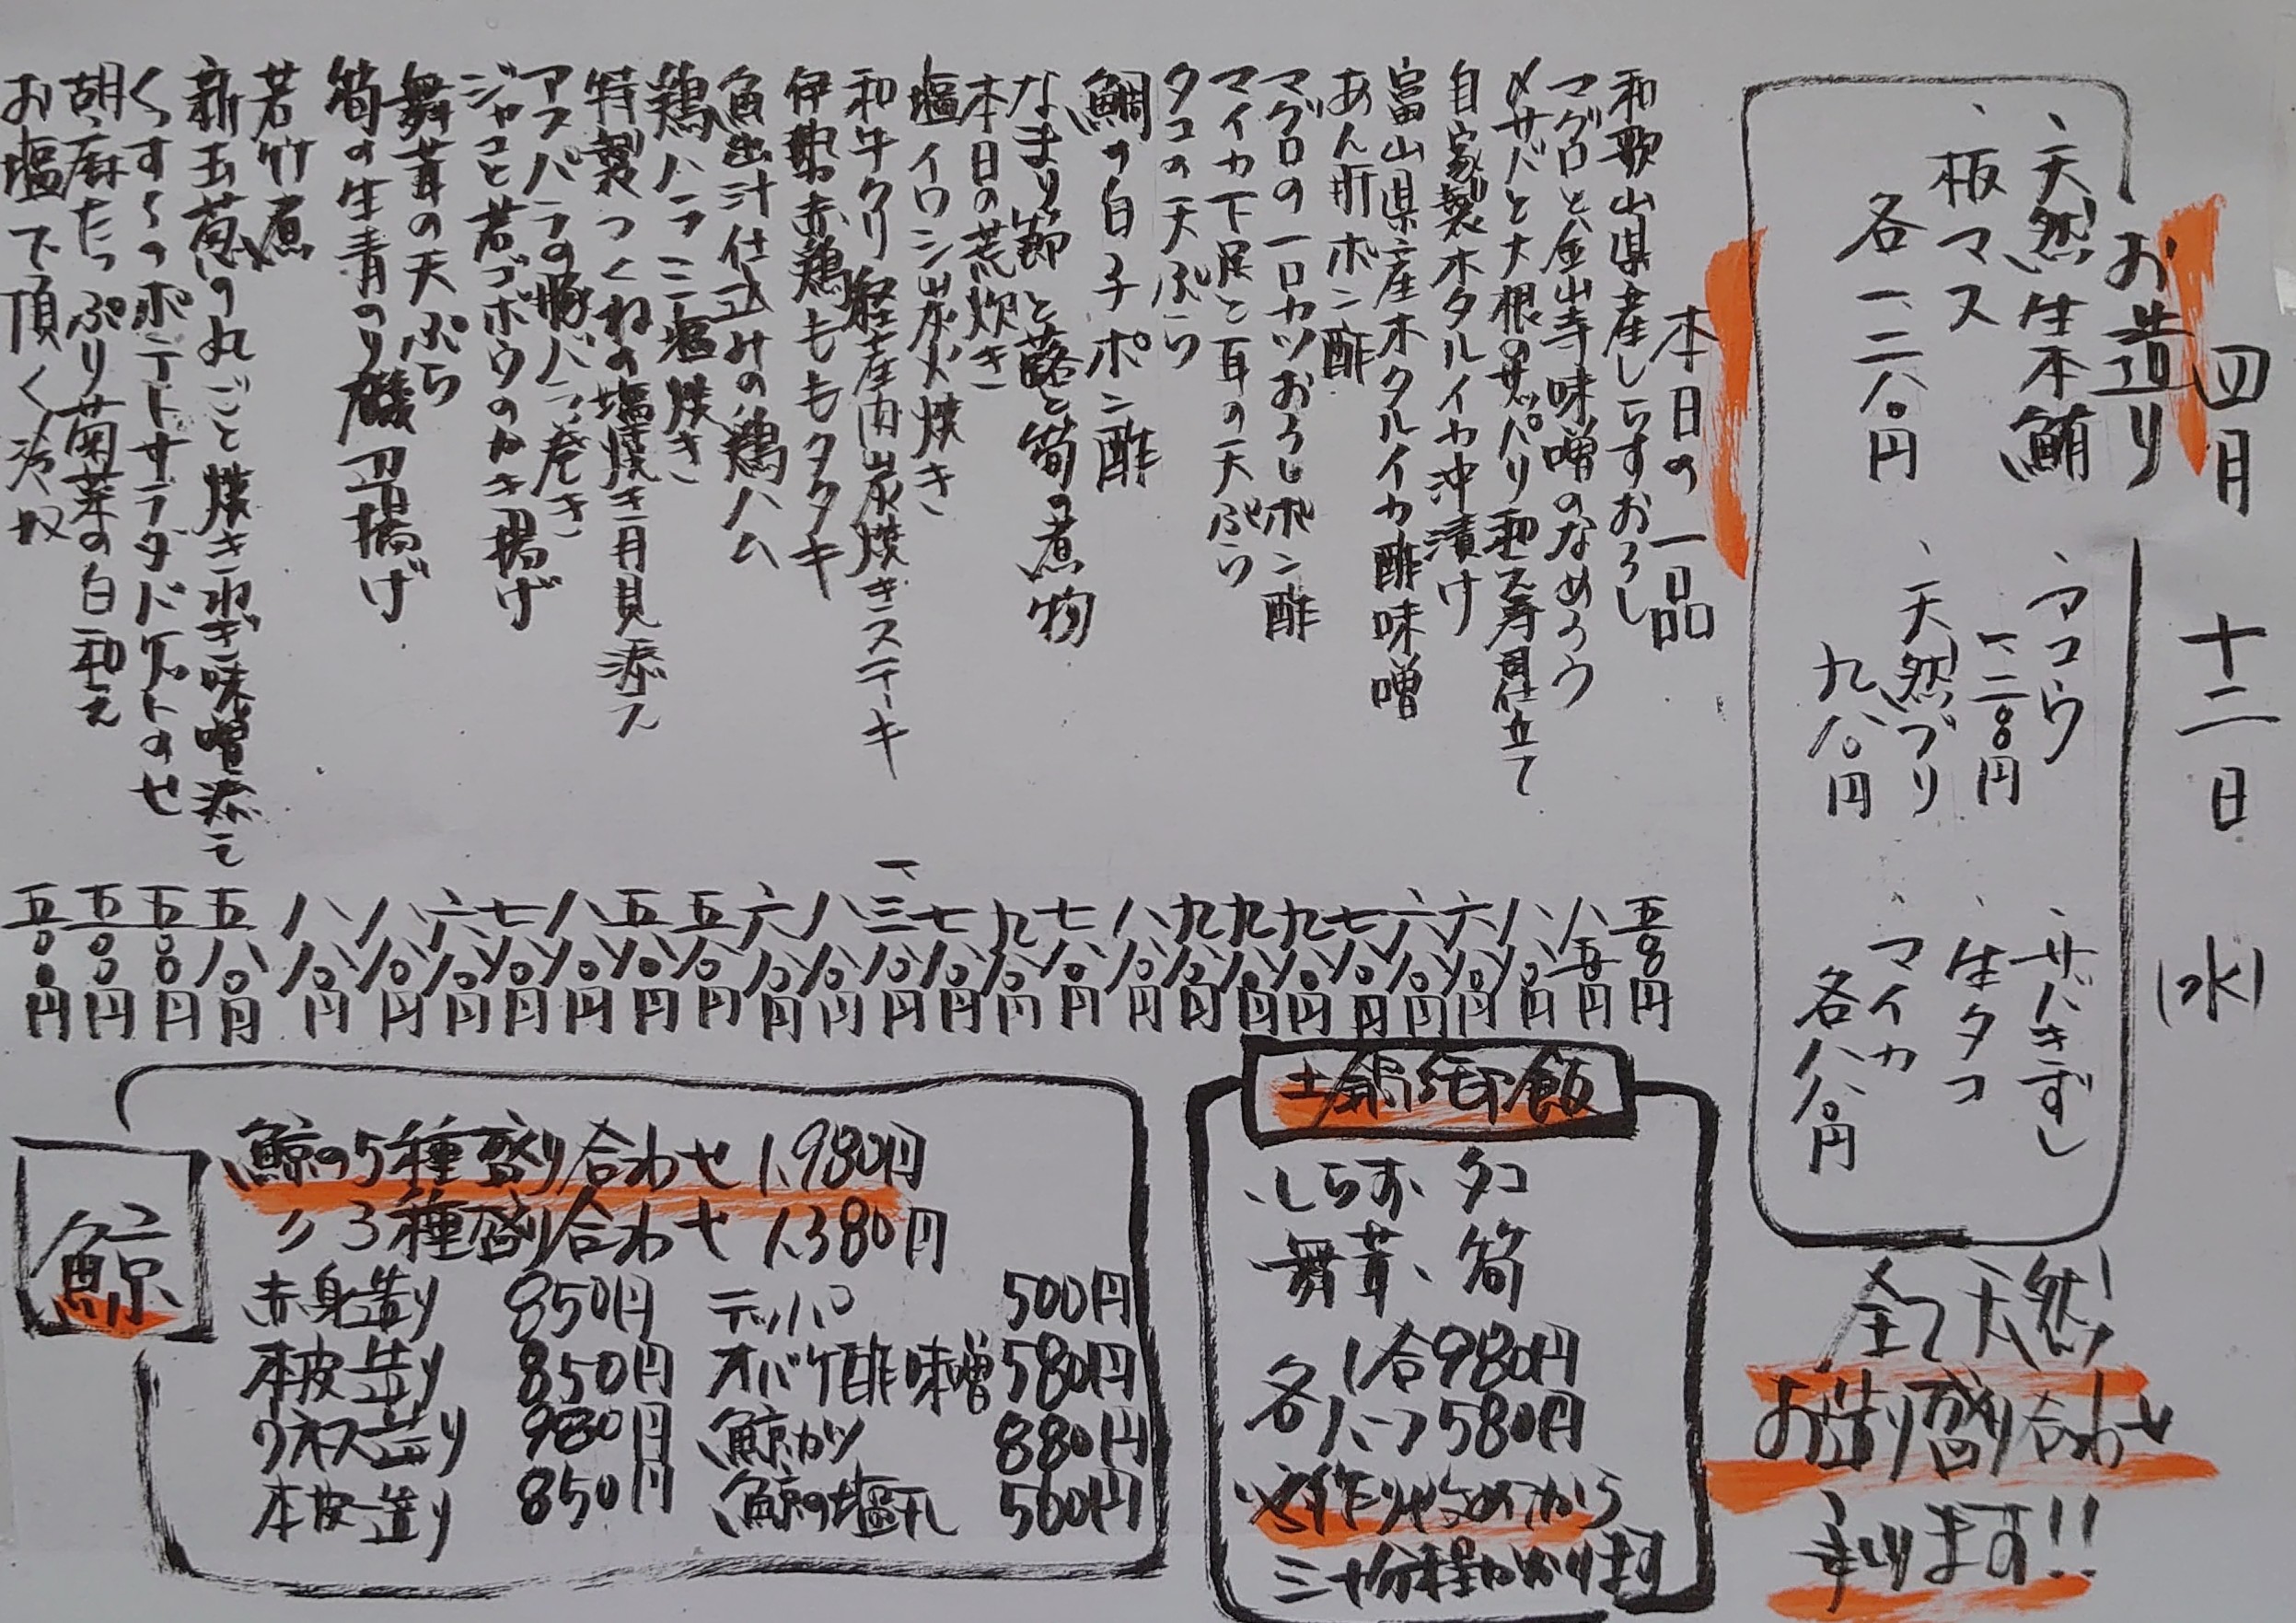 四月 十二日 (水)
お造り
、天然生本鮪
、板マス
各一、二八〇円
、アコウ
一、二〇〇円
、天然ブリ
九八〇円
、サバきずし
、生タコ
、マイカ
各八八〇円
全て天然!
お造り盛り合わせ
承ります!!
本日の一品
和歌山県産しらすおろし 五〇〇円
マグロと金山寺味噌のなめろう 八五〇円
〆サバと大根のサッパリ和え寿司仕立て 八八〇円
自家製ホタルイカ沖漬け 六八〇円
富山県産ホタルイカ酢味噌 六八〇円
あん肝ポン酢 七八〇円
マグロの一口カツおろしポン酢 九八〇円
マイカ下足と耳の天ぷら 九八〇円
タコの天ぷら 九八〇円
鯛の白子ポン酢 八八〇円
なまり節と蕗と筍の煮物 七八〇円
本日の荒炊き 九八〇円
塩イワシ炭火焼き 七八〇円
和牛クリ 経産肉炭焼きステーキ 一、三八〇円
伊勢赤鶏もものタタキ 八八〇円
魚出汁仕込みの鶏ハム 六八〇円
鶏ハラミ塩焼き 五八〇円
特製つくねの塩焼き月見添え 五八〇円
アスパラの豚バラ巻き 八八〇円
ジャコと若ゴボウのかき揚げ 七八〇円
舞茸の天ぷら 六八〇円
筍の生青のり磯辺揚げ 八八〇円
若竹煮 八八〇円
新玉葱の丸ごと焼きねぎ味噌添え 五八〇円
くすくすポテトサラダドゲットのせ 五〇〇円
胡麻たっぷり菊菜の白和え 五〇〇円
お塩で頂く冷奴 五〇〇円
土鍋御飯
・しらす、タコ
・舞茸、筍
各 1合980円
ハーフ580円
※作り始めてから
三十分程かかります
鯨
鯨の5種盛り合わせ 1,980円
〃 3種盛り合わせ 1,380円
赤身造り 850円 テッパ 500円
本皮造り 850円 オバケ酢味噌 580円
ウネス造り 980円 鯨カツ 880円
本皮造り 850円 鯨の塩干し 500円